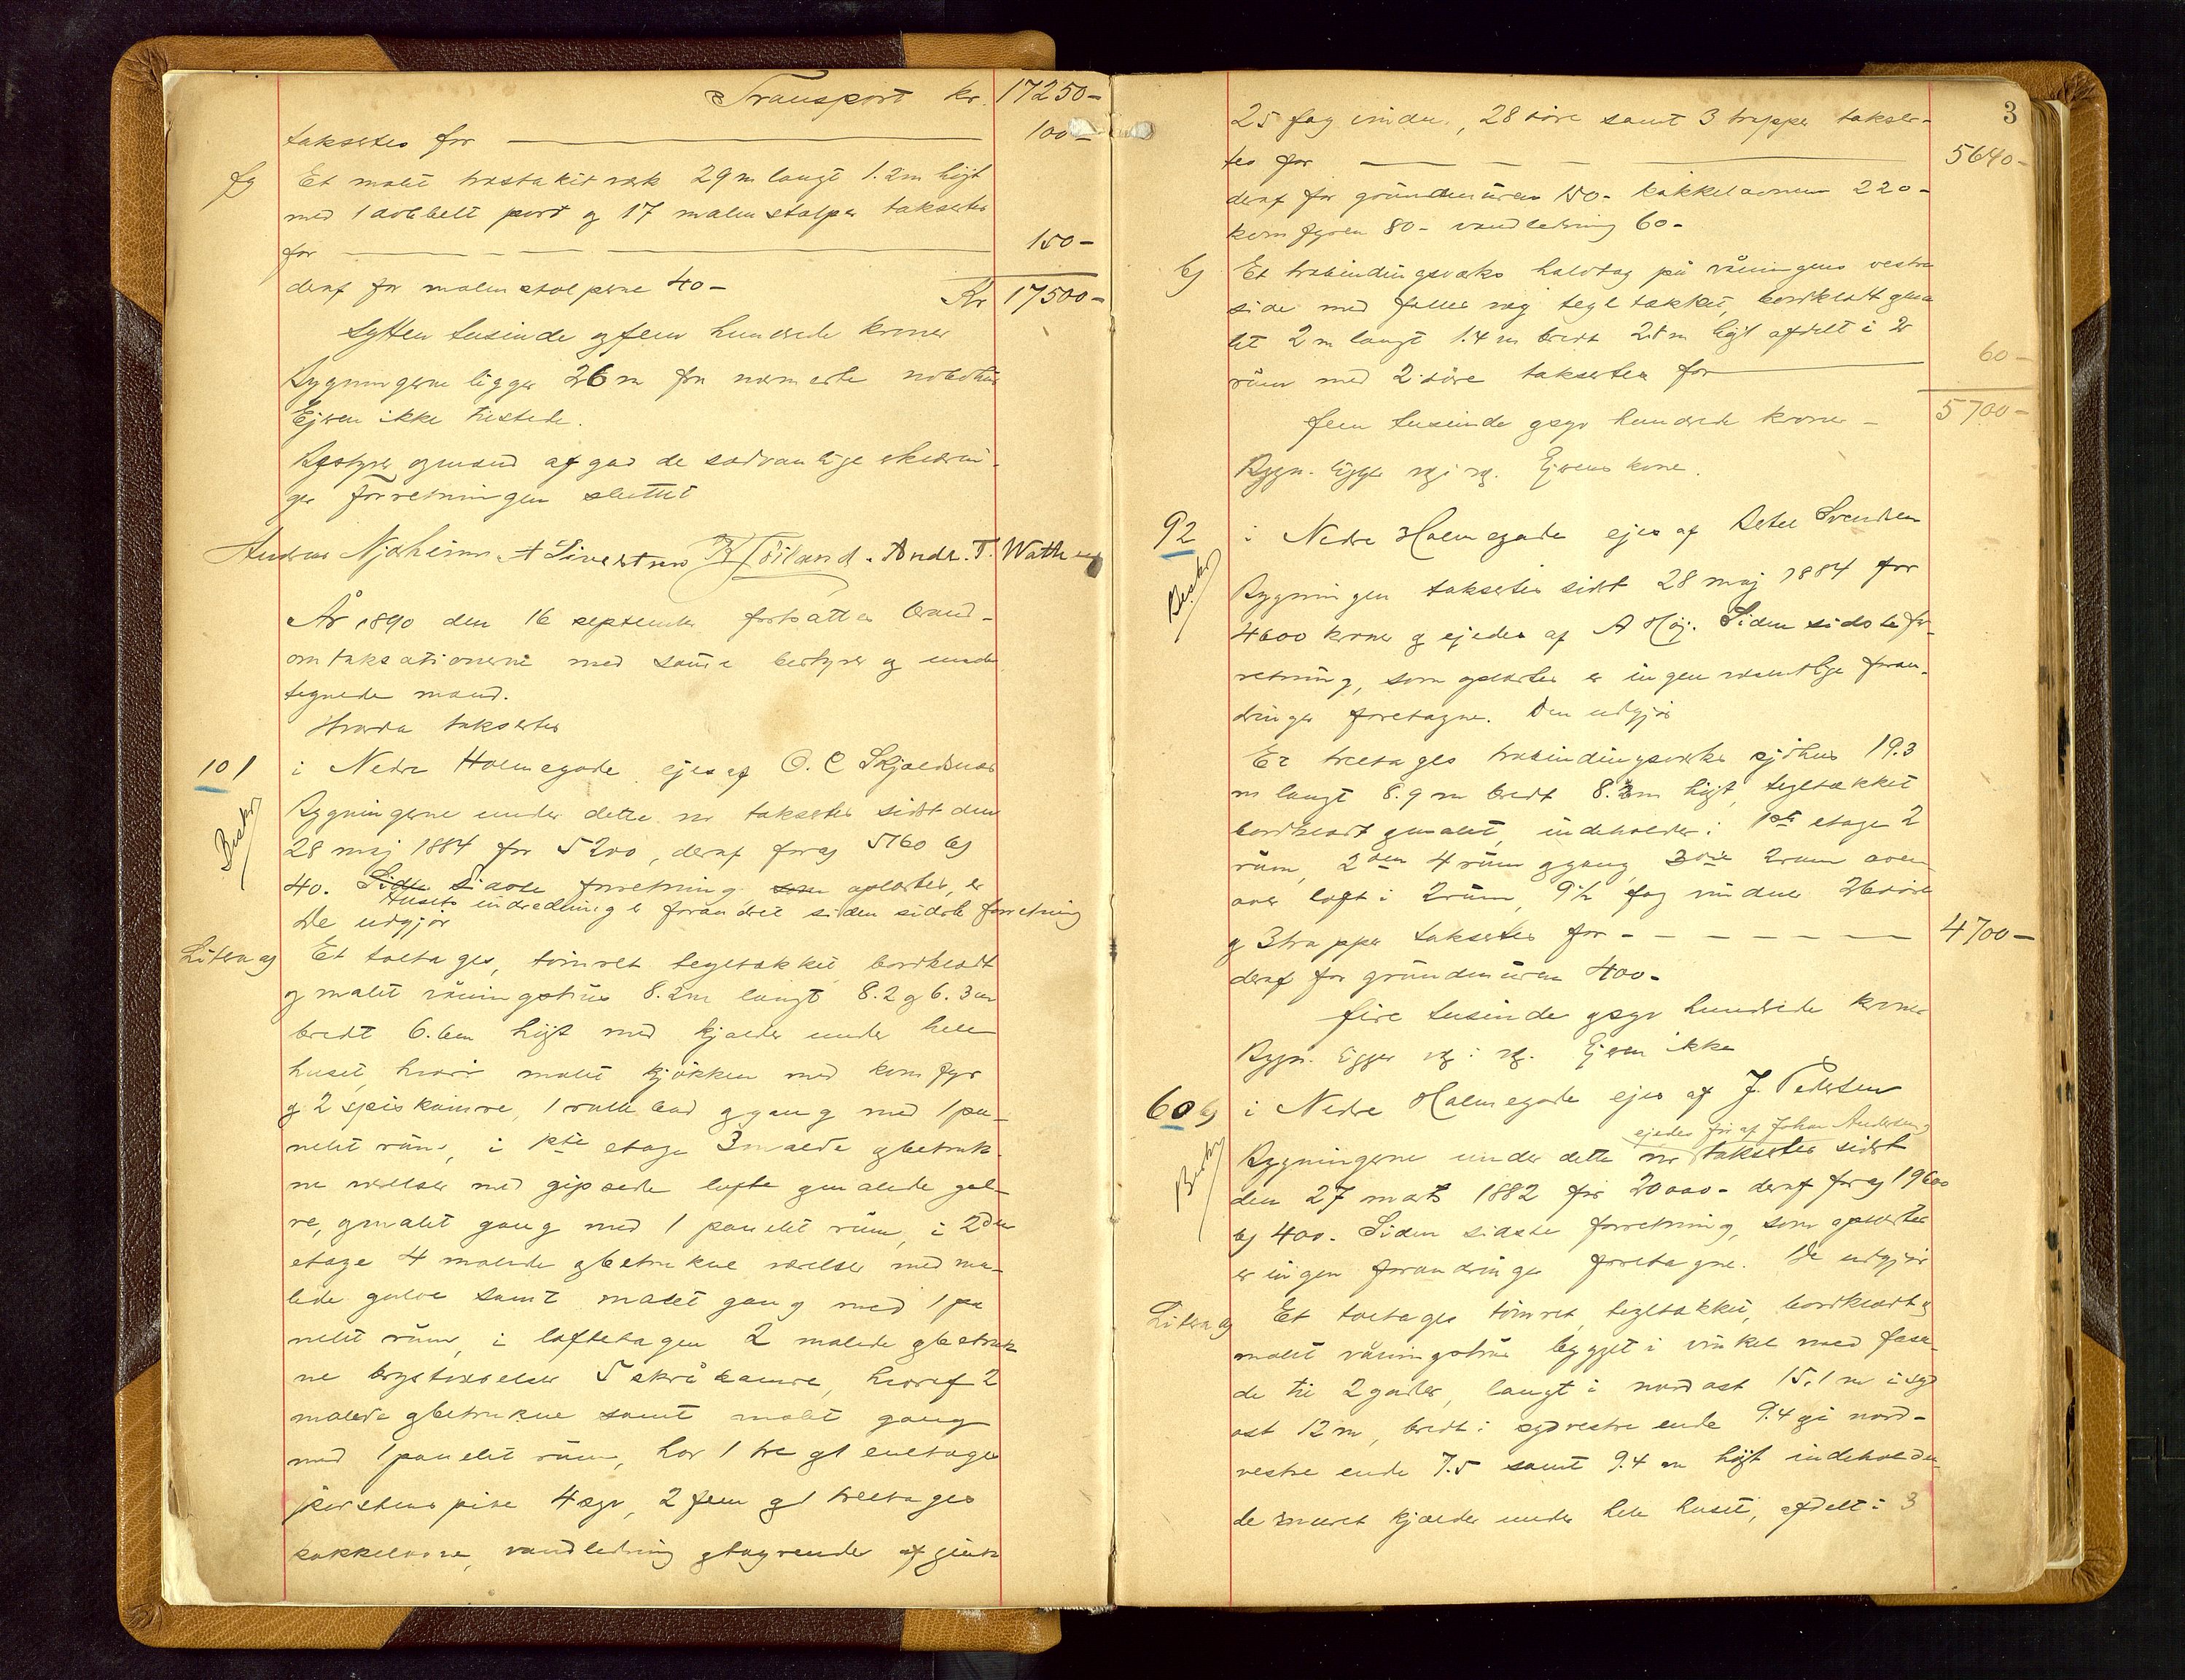 Transport kr. 17250-
taksertes for 100-
fg Et malt træstakitværk 29 m langt 1.2 m högt
med 1 dobbelt port og 17 malmstolper taksertes
for 150-
deraf for malmstolperne 40- Kr 17500-
Sytten tusinde og fem hundrede kroner
Bygningerne ligger 26 m fra nærmeste nabohus
Ejeren ikke tilstede.
Bestyrer og mænd afgav de sædvanlige erklærin-
ger forretningen sluttet
Andreas Njæheim A Sivertsen Höiland. Andr. T. Wathne
År 1890 den 16 september fortsattes brand-
omtaksationerne med samme bestyrer og under
tegnede mænd.
Hvorda taksertes
101 i Nedre Holmegade ejes af O. C Skjoldnæs
Bygningerne under dette nr taksertes sidst den
28 maj 1884 for 5200, deraf for a) 5160 b)
40. Sidste forretning som oplæstes, er
Husets indredning er forandret siden sidste forretning
De udgjör
Litra a) Et toetages, tömret tegltækket bordklædt
og malet våningshus 8.2 m langt 8.2 og 6.3 m
bredt 6.6 m högt med kjælder under hele
huset, hvori malet kjökken med komfyr
og 2 spiskamre, 1 rullebod og gang med 1 pa-
nelet rum, i 1ste etage 3 malede og betruk-
ne værelser med gipsede lofte og malede gul-
ve, og malet gang med 1 panelet rum, i 2den
etage 4 malede og betrukne værelser med ma-
lede gulve samt malet gang med 1 pa
nelet rum, i loftetagen 2 malede og betruk
ne kvistværelser 5 skråkamre, hvoraf 2
malede og betrukne samt malet gang
med 1 panelet rum, har 1 tre og 1 enetages
skorstenspibe 4 syv, 2 fem og 1 treetages
kakkelovne, vandledning og tagrender af zink
3
25 fag vinduer, 28 döre samt 3 trapper takser-
tes for 5640-
deraf for grundmuren 150- kakkelovnene 220-
komfyren 80- vandledning 60-
b) Et træbindingsværks halvtag på våningens vestre
side med fælles væg tegltækket, bordklædt og ma
let 2 m langt 1.4 m bredt 2.8 m högt afdelt i 2
rum med 2 döre taksertes for 60-
5700-
fem tusinde og syv hundrede kroner -
Bygn. ligger væg i væg. Ejerens kone.
92 i Nedre Holmegade ejes af Bertel Svendsen
Bygningen taksertes sidst 28 maj 1884 for
4600 kroner og ejedes af A Höj. Siden sidste for-
retning, som oplæstes er ingen væsentlige foran-
dringer foretagne. Den udgjör
Et treetages træbindingsværks sjöhus 19.3
m langt 8.9 m bredt 8.3 m högt, tegltækket
bordklædt og malet, indeholder i 1ste etage 2
rum, 2den 4 rum og gang, 3die 2 rum oven
over loft i 2 rum, 9½ fag vinduer 26 döre
og 3 trapper taksertes for 4700-
deraf for grundmuren 400-
fire tusinde og syv hundrede kroner
Bygn. ligger væg i væg. Ejeren ikke
60 b) i Nedre Holmegade ejes af J. Pedersen
ejedes för af Johan Andersen
Bygningerne under dette nr taksertes sidst
den 27 mars 1882 for 20000- deraf for a) 19600
b) 400. Siden sidste forretning, som oplæstes
er ingen forandringer foretagne. De udgjör
Litra a) Et toetages tömret, tegltækket, bordklædt og
malet våningshus bygget i vinkel med fasa-
de til 2 gader, langt i nordost 15.1 m i syd
ost 12 m, bredt i sydvestre ende 9.4 og i nord-
vestre ende 7.5 samt 9.4 m högt indeholden
de muret kjælder under hele huset, afdelt i 3